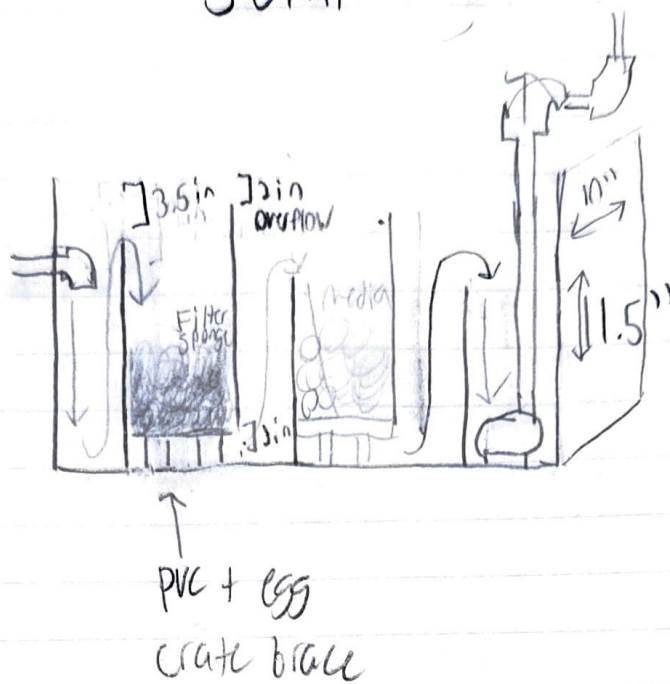 SUMP
]3.5in
]2in
overflow
10"
Filter
sponge
media
11.5"
]2in
PVC + egg
crate brace